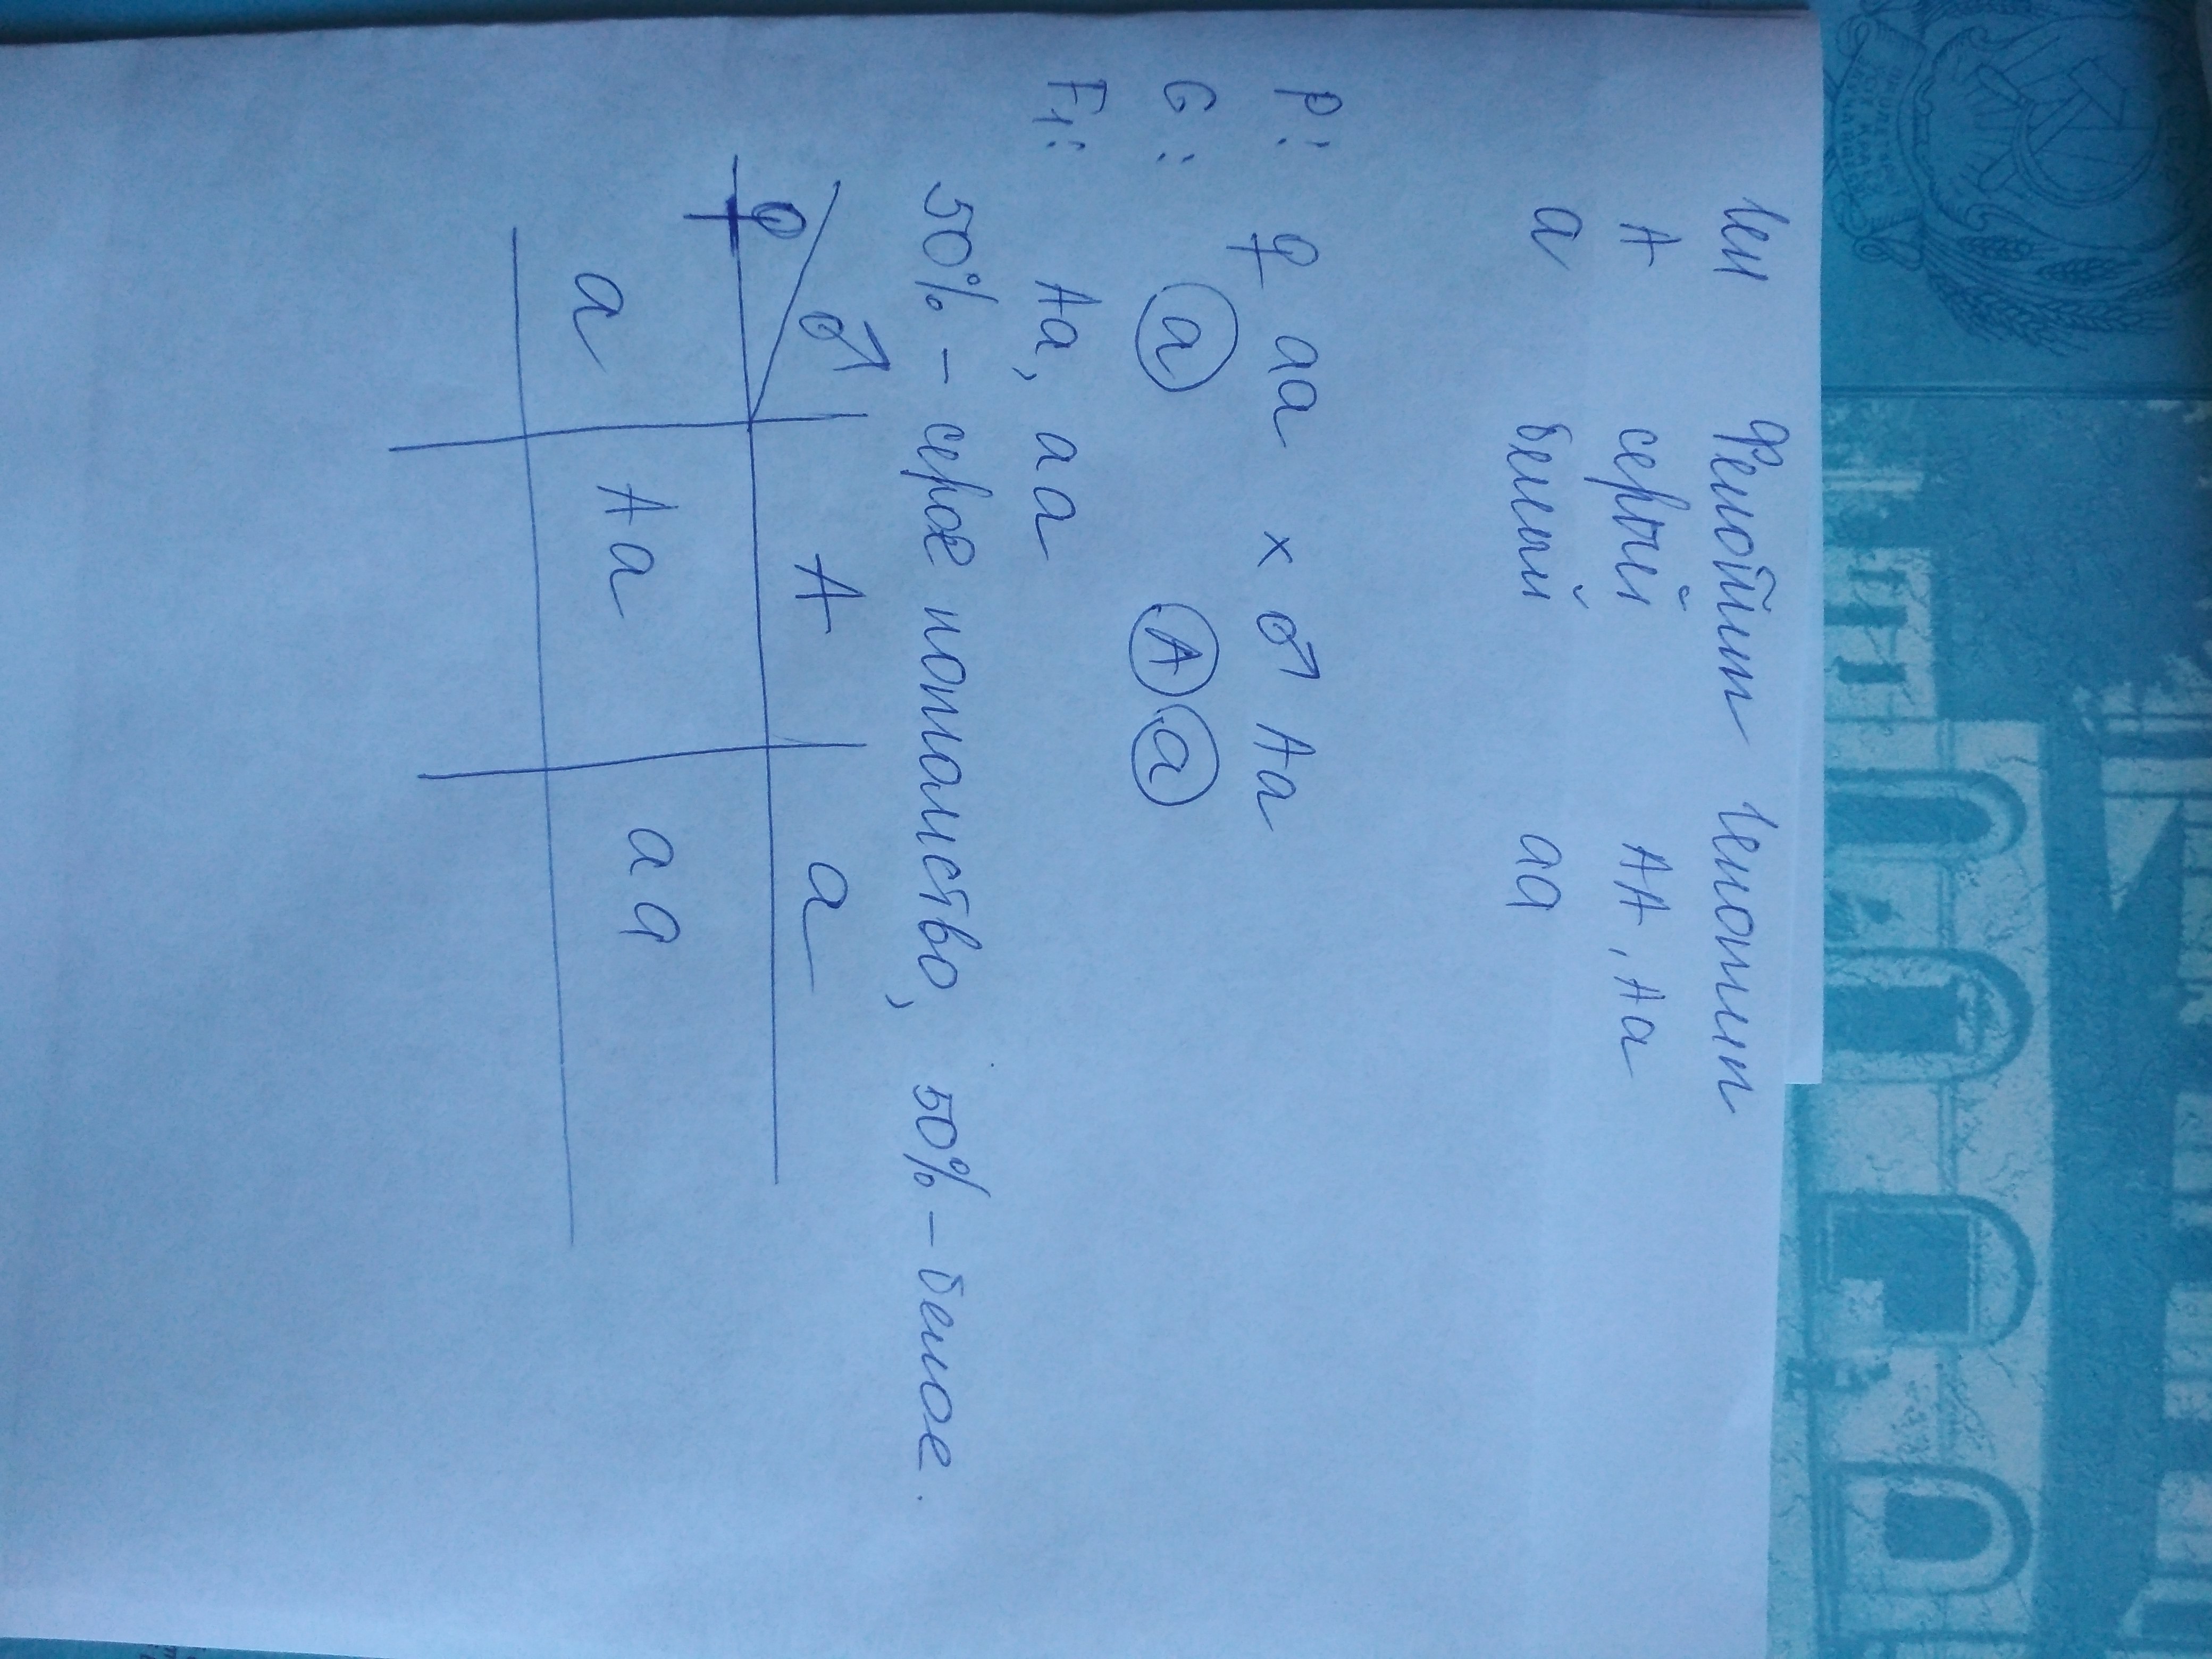 Ген Фенотип Генотип
А серый АА, Аа
а белый аа
P: ♀ aa x ♂ Aa
G: a A a
F1: Aa, aa
50% - серое потомство, 50% - белое.
♀ ♂ A a
a Aa aa